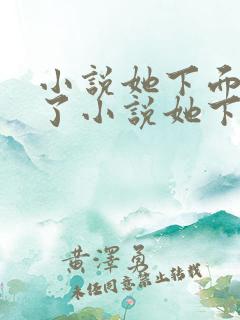 小説她下而
了小説她下
黃澤勇
未經同意禁止轉載